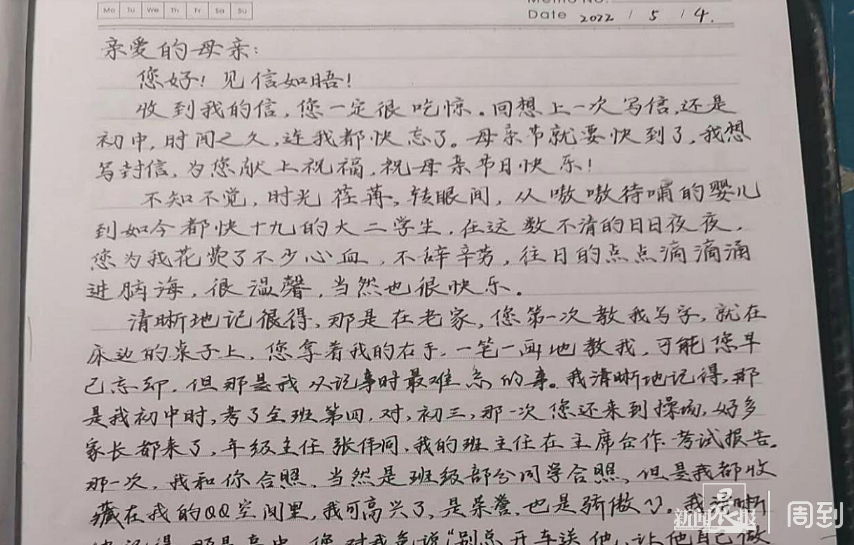 Mo Tu We Th Fr Sa Su
Memo No.
Date 2022 / 5 / 4.
亲爱的母亲:
您好!见信如晤!
收到我的信,您一定很吃惊。回想上一次写信,还是
初中,时间之久,连我都快忘了。母亲节就要快到了,我想
写封信,为您献上祝福,祝母亲节日快乐!
不知不觉,时光荏苒,转眼间,从嗷嗷待哺的婴儿
到如今都快十九的大二学生,在这数不清的日日夜夜,
您为我花费了不少心血,不辞辛劳,往日的点点滴滴涌
进脑海,很温馨,当然也很快乐。
清晰地记很得,那是在老家,您第一次教我写字,就在
床边的桌子上,您拿着我的右手,一笔一画地教我,可能您早
已忘却,但那是我从记事时最难忘的事。我清晰地记得,那
是我初中时,考了全班第四,对,初三,那一次您还来到操场,好多
家长都来了,年级主任张伟同,我的班主任在主席台作考试报告。
那一次,我和你合照,当然是班级部分同学合照,但是我都收
藏在我的QQ空间里,我可高兴了,是荣誉,也是骄傲 我清晰
地记得,那是高中,您对我爸说“别总开车送他,让他自己做
新闻晨报 周到